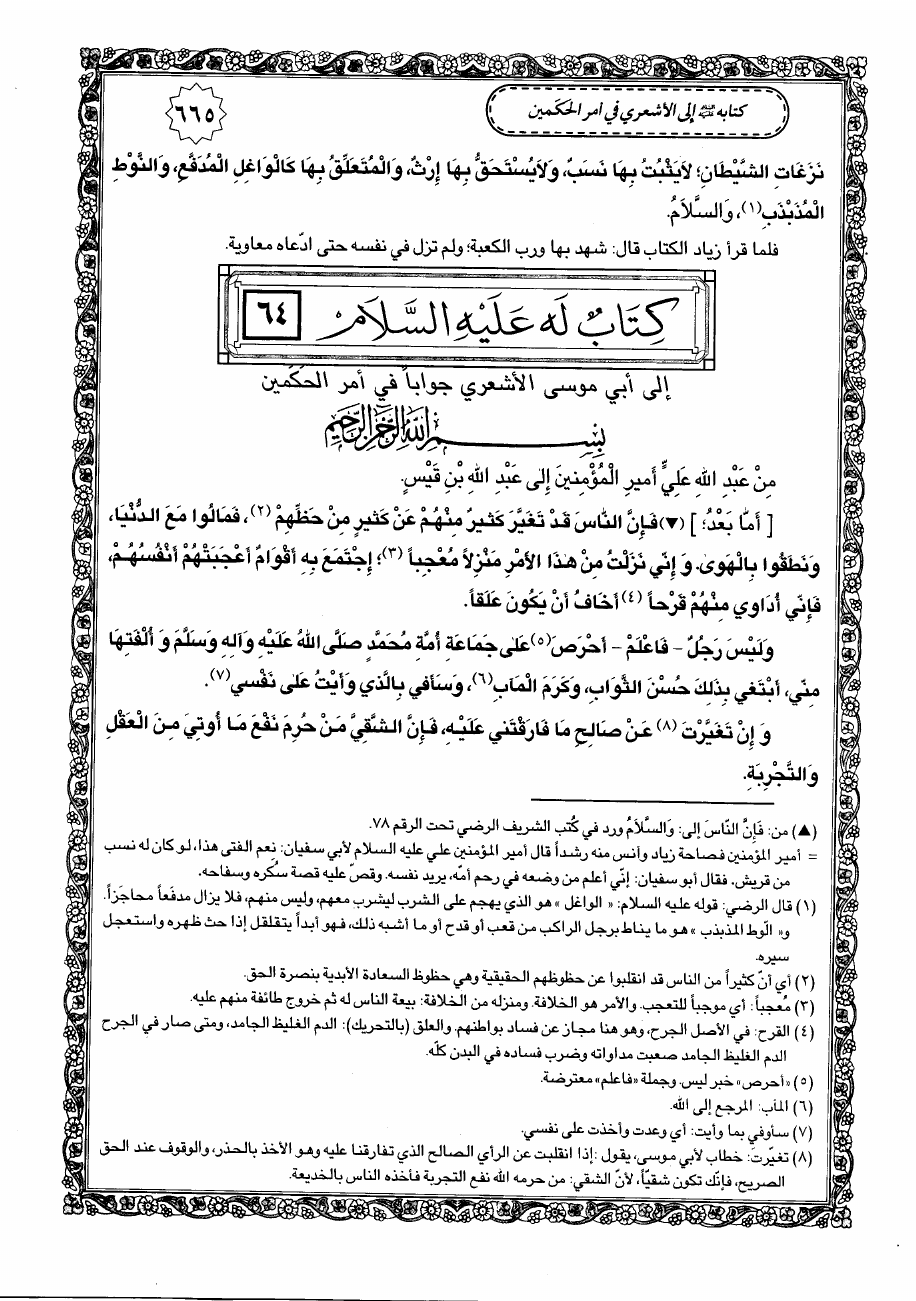 كتابه عليه السلام إلى الأشعري في أمر الحكمين
٦٦٥
نَزَغَاتِ الشَّيْطَانِ؛ لاَيَثْبُتُ بِهَا نَسَبٌ، وَلاَيُسْتَحَقُّ بِهَا إِرْثٌ، وَالْمُتَعَلِّقُ بِهَا كَالْوَاغِلِ الْمُدَفَّعِ، وَالنَّوْطِ
الْمُذَبْذَبِ(١)، وَالسَّلاَمُ.
فلما قرأ زياد الكتاب قال: شهد بها ورب الكعبة؛ ولم تزل في نفسه حتى ادّعاه معاوية.
كِتَابٌ لَه عَلَيْهِ السَّلاَم ٦٤
إلى أبي موسى الأشعري جواباً في أمر الحَكَمين
بِسْمِ اللهِ الرَّحْمٰنِ الرَّحِيمِ
مِنْ عَبْدِ اللهِ عَلِيٍّ أَمِيرِ الْمُؤْمِنينَ إِلىٰ عَبْدِ اللهِ بْنِ قَيْسٍ.
[ أَمَّا بَعْدُ؛ ] (▼) فَإِنَّ النَّاسَ قَدْ تَغَيَّرَ كَثيرٌ مِنْهُمْ عَنْ كَثيرٍ مِنْ حَظِّهِمْ (٢)، فَمَالُوا مَعَ الدُّنْيَا،
وَنَطَقُوا بِالْهَوىٰ. وَ إِنّي نَزَلْتُ مِنْ هٰذَا الأَمْرِ مَنْزِلاً مُعْجِباً (٣)؛ إِجْتَمَعَ بِهِ أَقْوَامٌ أَعْجَبَتْهُمْ أَنْفُسُهُمْ،
فَإِنّي أُدَاوي مِنْهُمْ قَرْحاً (٤) أَخَافُ أَنْ يَكُونَ عَلَقاً.
وَلَيْسَ رَجُلٌ - فَاعْلَمْ - أَحْرَصَ (٥) عَلىٰ جَمَاعَةِ أُمَّةِ مُحَمَّدٍ صَلَّى اللهُ عَلَيْهِ وَآلِهِ وَسَلَّمَ وَ أُلْفَتِهَا
مِنّي، أَبْتَغي بِذَلِكَ حُسْنَ الثَّوَابِ، وَكَرَمَ الْمَآبِ(٦)، وَسَأَفي بِالَّذي وَأَيْتُ عَلىٰ نَفْسي(٧).
وَ إِنْ تَغَيَّرْتَ (٨) عَنْ صَالِحِ مَا فَارَقْتَني عَلَيْهِ، فَإِنَّ الشَّقِيَّ مَنْ حُرِمَ نَفْعَ مَا أُوتِيَ مِنَ الْعَقْلِ
وَالتَّجْرِبَةِ.
(▲) من: فَإِنَّ النَّاسَ إلى: وَالسَّلاَمُ ورد في كُتب الشريف الرضي تحت الرقم ٧٨.
= أمير المؤمنين فصاحة زياد وأنس منه رشداً قال أمير المؤمنين علي عليه السلام لأبي سفيان: نعم الفتى هذا، لو كان له نسب
من قريش. فقال أبو سفيان: إنّي أعلم من وضعه في رحم أمّه، يريد نفسه. وقصّ عليه قصة سكره وسفاحه.
(١) قال الرضي: قوله عليه السلام: « الواغل » هو الذي يهجم على الشرب ليشرب معهم، وليس منهم، فلا يزال مدفعاً محاجزاً.
و« الّوط المذبذب » هو ما يناط برجل الراكب من قعب أو قدح أو ما أشبه ذلك، فهو أبداً يتقلقل إذا حث ظهره واستعجل
سيره.
(٢) أي أنّ كثيراً من الناس قد انقلبوا عن حظوظهم الحقيقية وهي حظوظ السعادة الأبدية بنصرة الحق.
(٣) مُعجباً: أي موجباً للتعجب. والأمر هو الخلافة. ومنزله من الخلافة: بيعة الناس له ثم خروج طائفة منهم عليه.
(٤) القرح: في الأصل الجرح، وهو هنا مجاز عن فساد بواطنهم. والعلق (بالتحريك): الدم الغليظ الجامد، ومتى صار في الجرح
الدم الغليظ الجامد صعبت مداواته وضرب فساده في البدن كلّه.
(٥) «أحرص» خبر ليس. وجملة «فاعلم» معترضة.
(٦) المآب: المرجع إلى الله.
(٧) سأوفي بما وأيت: أي وعدت وأخذت على نفسي.
(٨) تغيّرت: خطاب لأبي موسى، يقول :إذا انقلبت عن الرأي الصالح الذي تفارقنا عليه وهو الأخذ بالحذر، والوقوف عند الحق
الصريح، فإنّك تكون شقيّاً، لأنّ الشقي: من حرمه الله نفع التجربة فأخذه الناس بالخديعة.